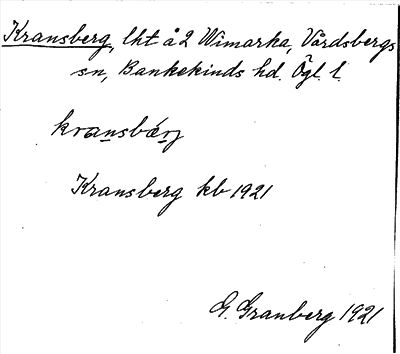 Kransberg, lht å 2 Wimarka, Vårdsbergs
sn, Bankekinds hd. Ögl. l.
kransbärj
Kransberg kb 1921
G. Granberg 1921